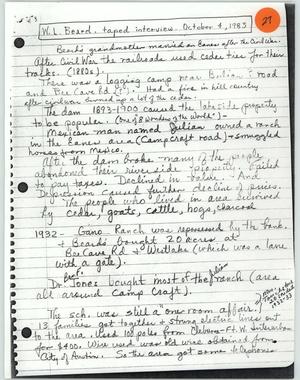 27
W. L. Beard, taped interview, October 4, 1983
Beard's grandmother married an Eanes after the Civil War.
After Civil War the railroads used cedar ties for their
tracks. (1880s).
There was a logging camp near Bulian road
and Bee Cave Rd. Had a fire in hill country
after civil war burned up a lot of the cedar.
The dam 1893-1900 caused the lakeside property
to be popular. (One of 8 wonders of the world)
Mexican man named Julian owned a ranch
in the Eanes area (Campcraft road) + smuggled
horses from Mexico.
After the dam broke many of the people
abandoned their riverside property. Failed
to pay taxes. Declined in value. And
Depression caused further decline of prices.
The people who lived in area survived
by cedar, goats, cattle, hogs, charcoal
1932 - Gano Ranch was repossessed by the bank.
+ Beards bought 20 acres at
Bee Cave Rd + Westlake (which was a lane
with a gate).
Dr. Jones bought most of the ranch (area
all around Camp Craft).
The sch. was still a one room affair.
13 families got together + strung electric lines out
to the area. Used 100 poles from Cleburne-Ft. W. interurban
for $400. Wire used was old wire obtained from
City of Austin. So the area got some telephones